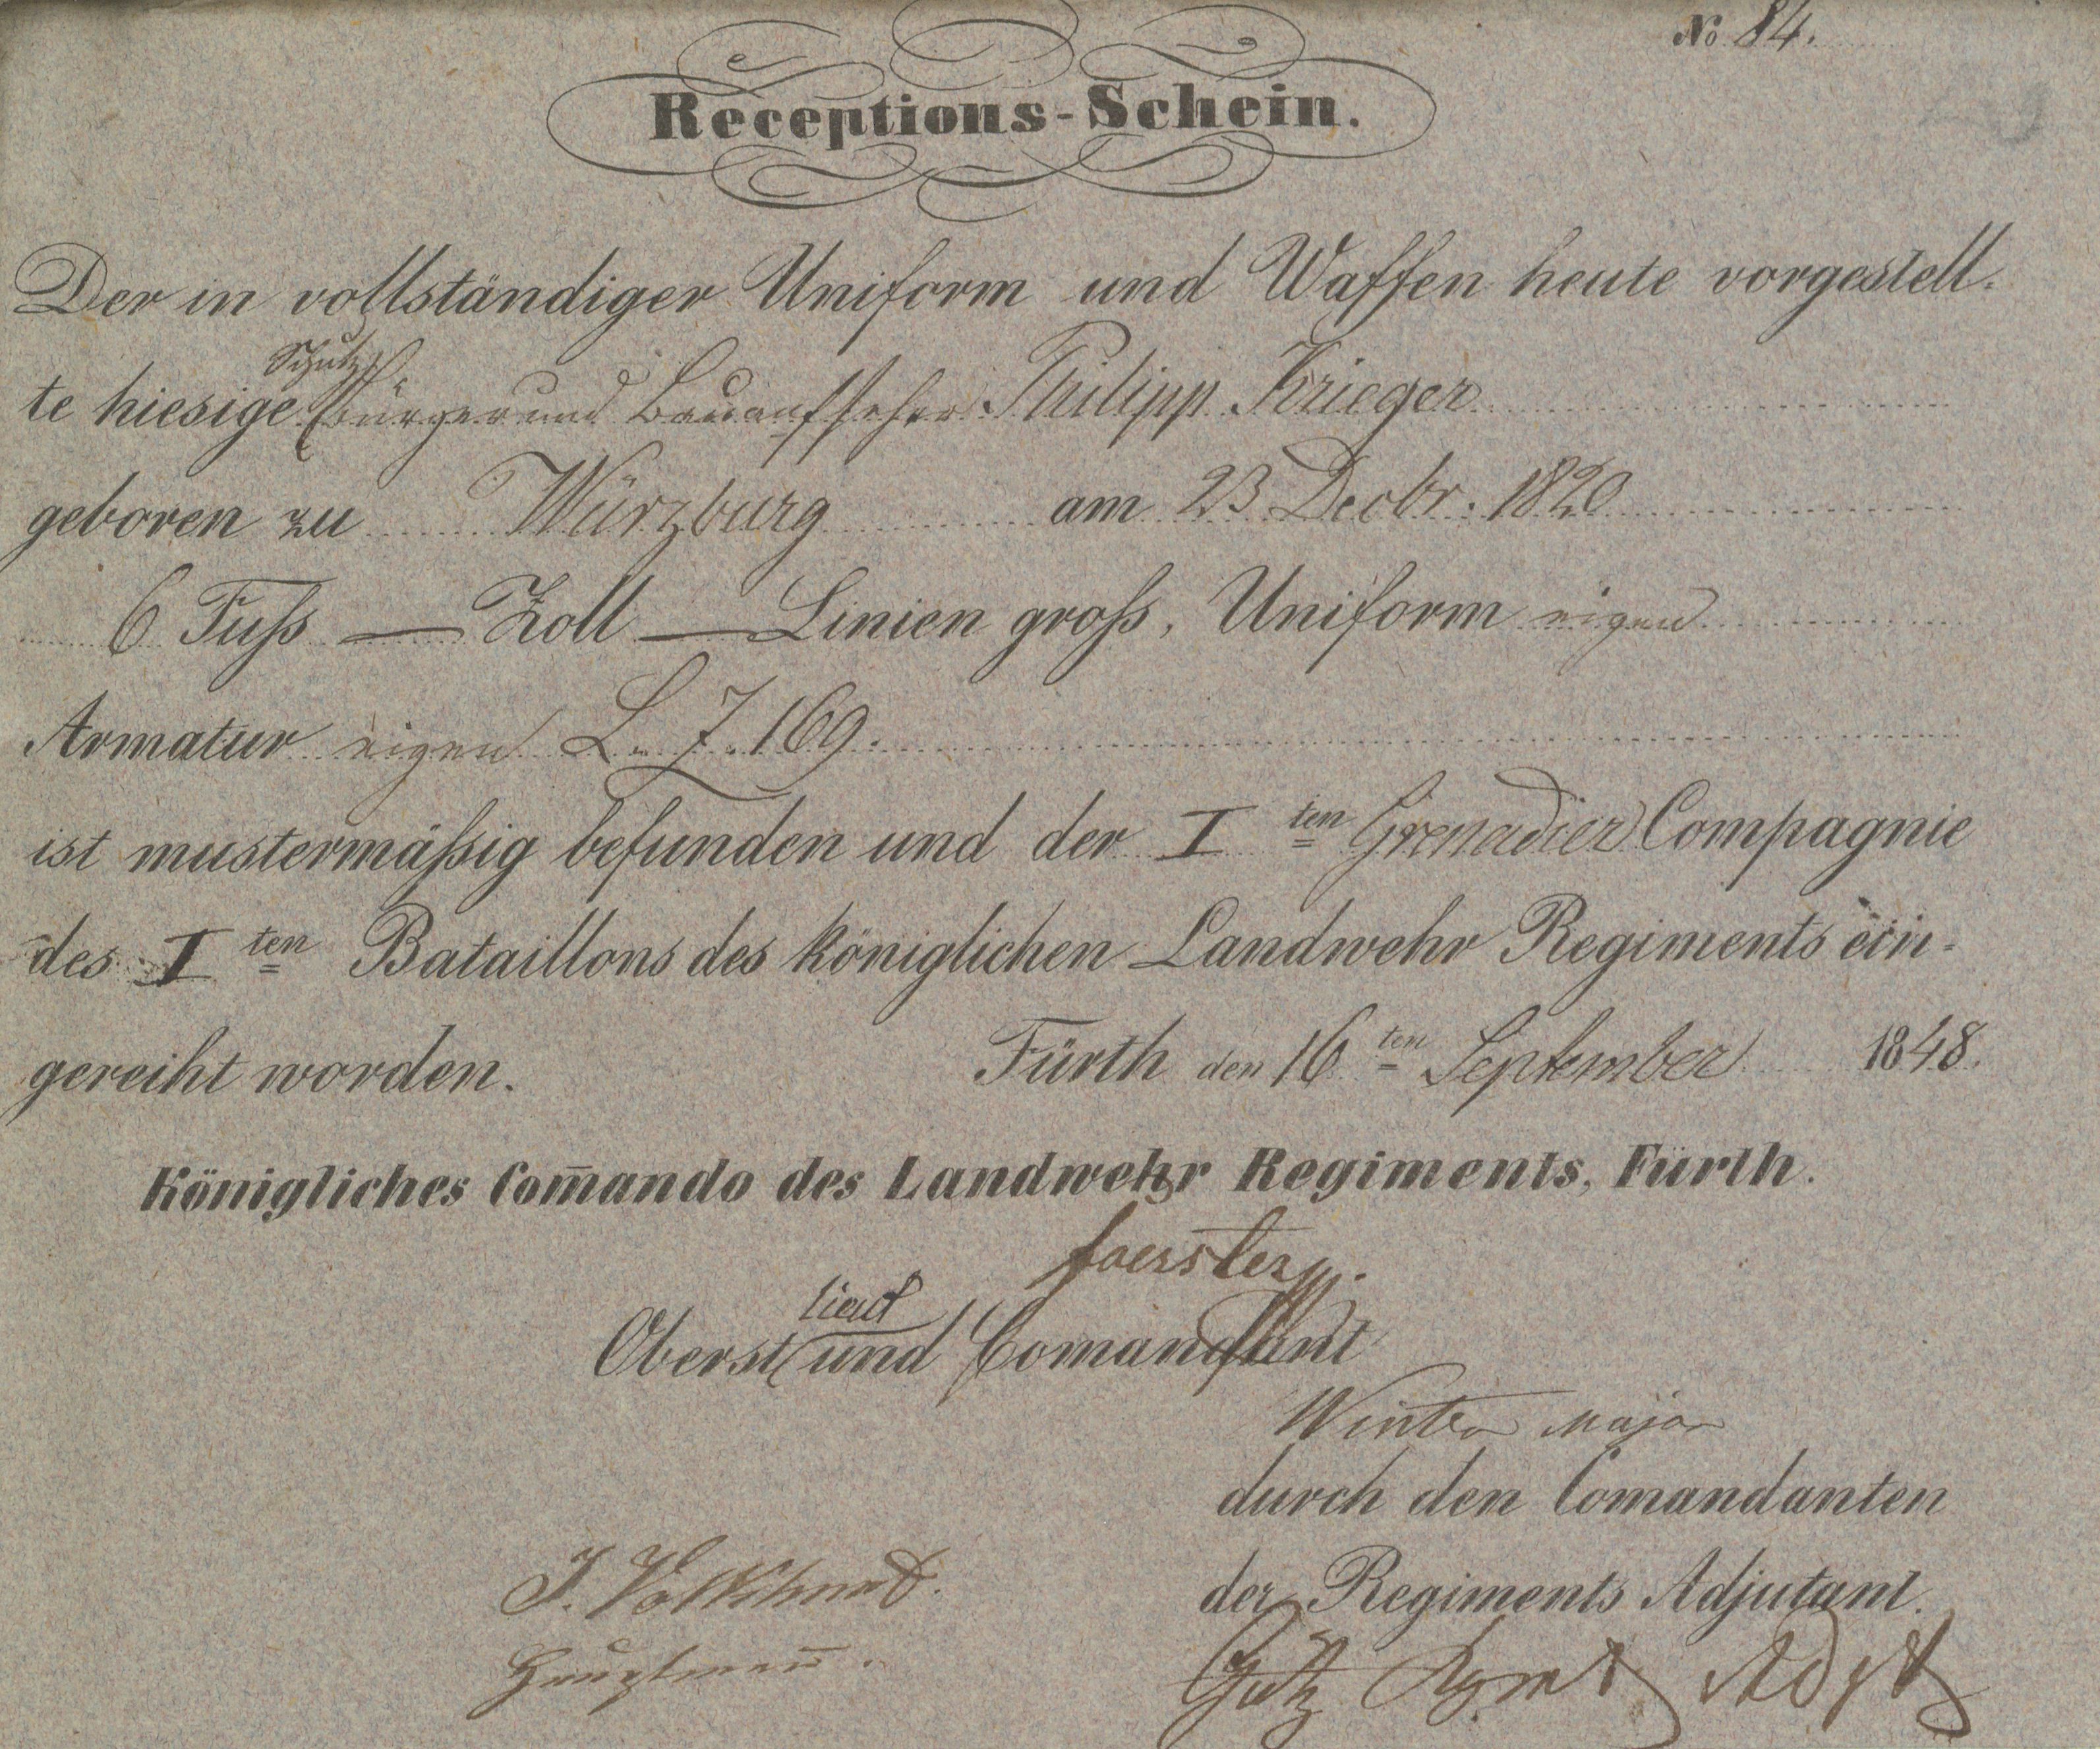 No 84.
Receptions-Schein.
Der in vollständiger Uniform und Waffen heute vorgestell-
te hiesige Schutzbürger und Bauaufseher Philipp Krieger
geboren zu Würzburg am 23 Decbr. 1820
6 Fuſs — Zoll — Linien groſs, Uniform eigen
Armatur eigen L. 7.169.
ist mustermäſsig befunden und der I ten Grenadier Compagnie
des I ten Bataillons des königlichen Landwehr Regiments ein-
gereiht worden. Fürth den 16 ten September 1848.
Königliches Com̄ando des Landwehr Regiments, Fürth.
foerster
Oberstlieut und Comandant
Winter Major
durch den Comandanten
J. Volkhardt.
der Regiments Adjutant.
Hauptman̄.
Götz Rgmts Adjt